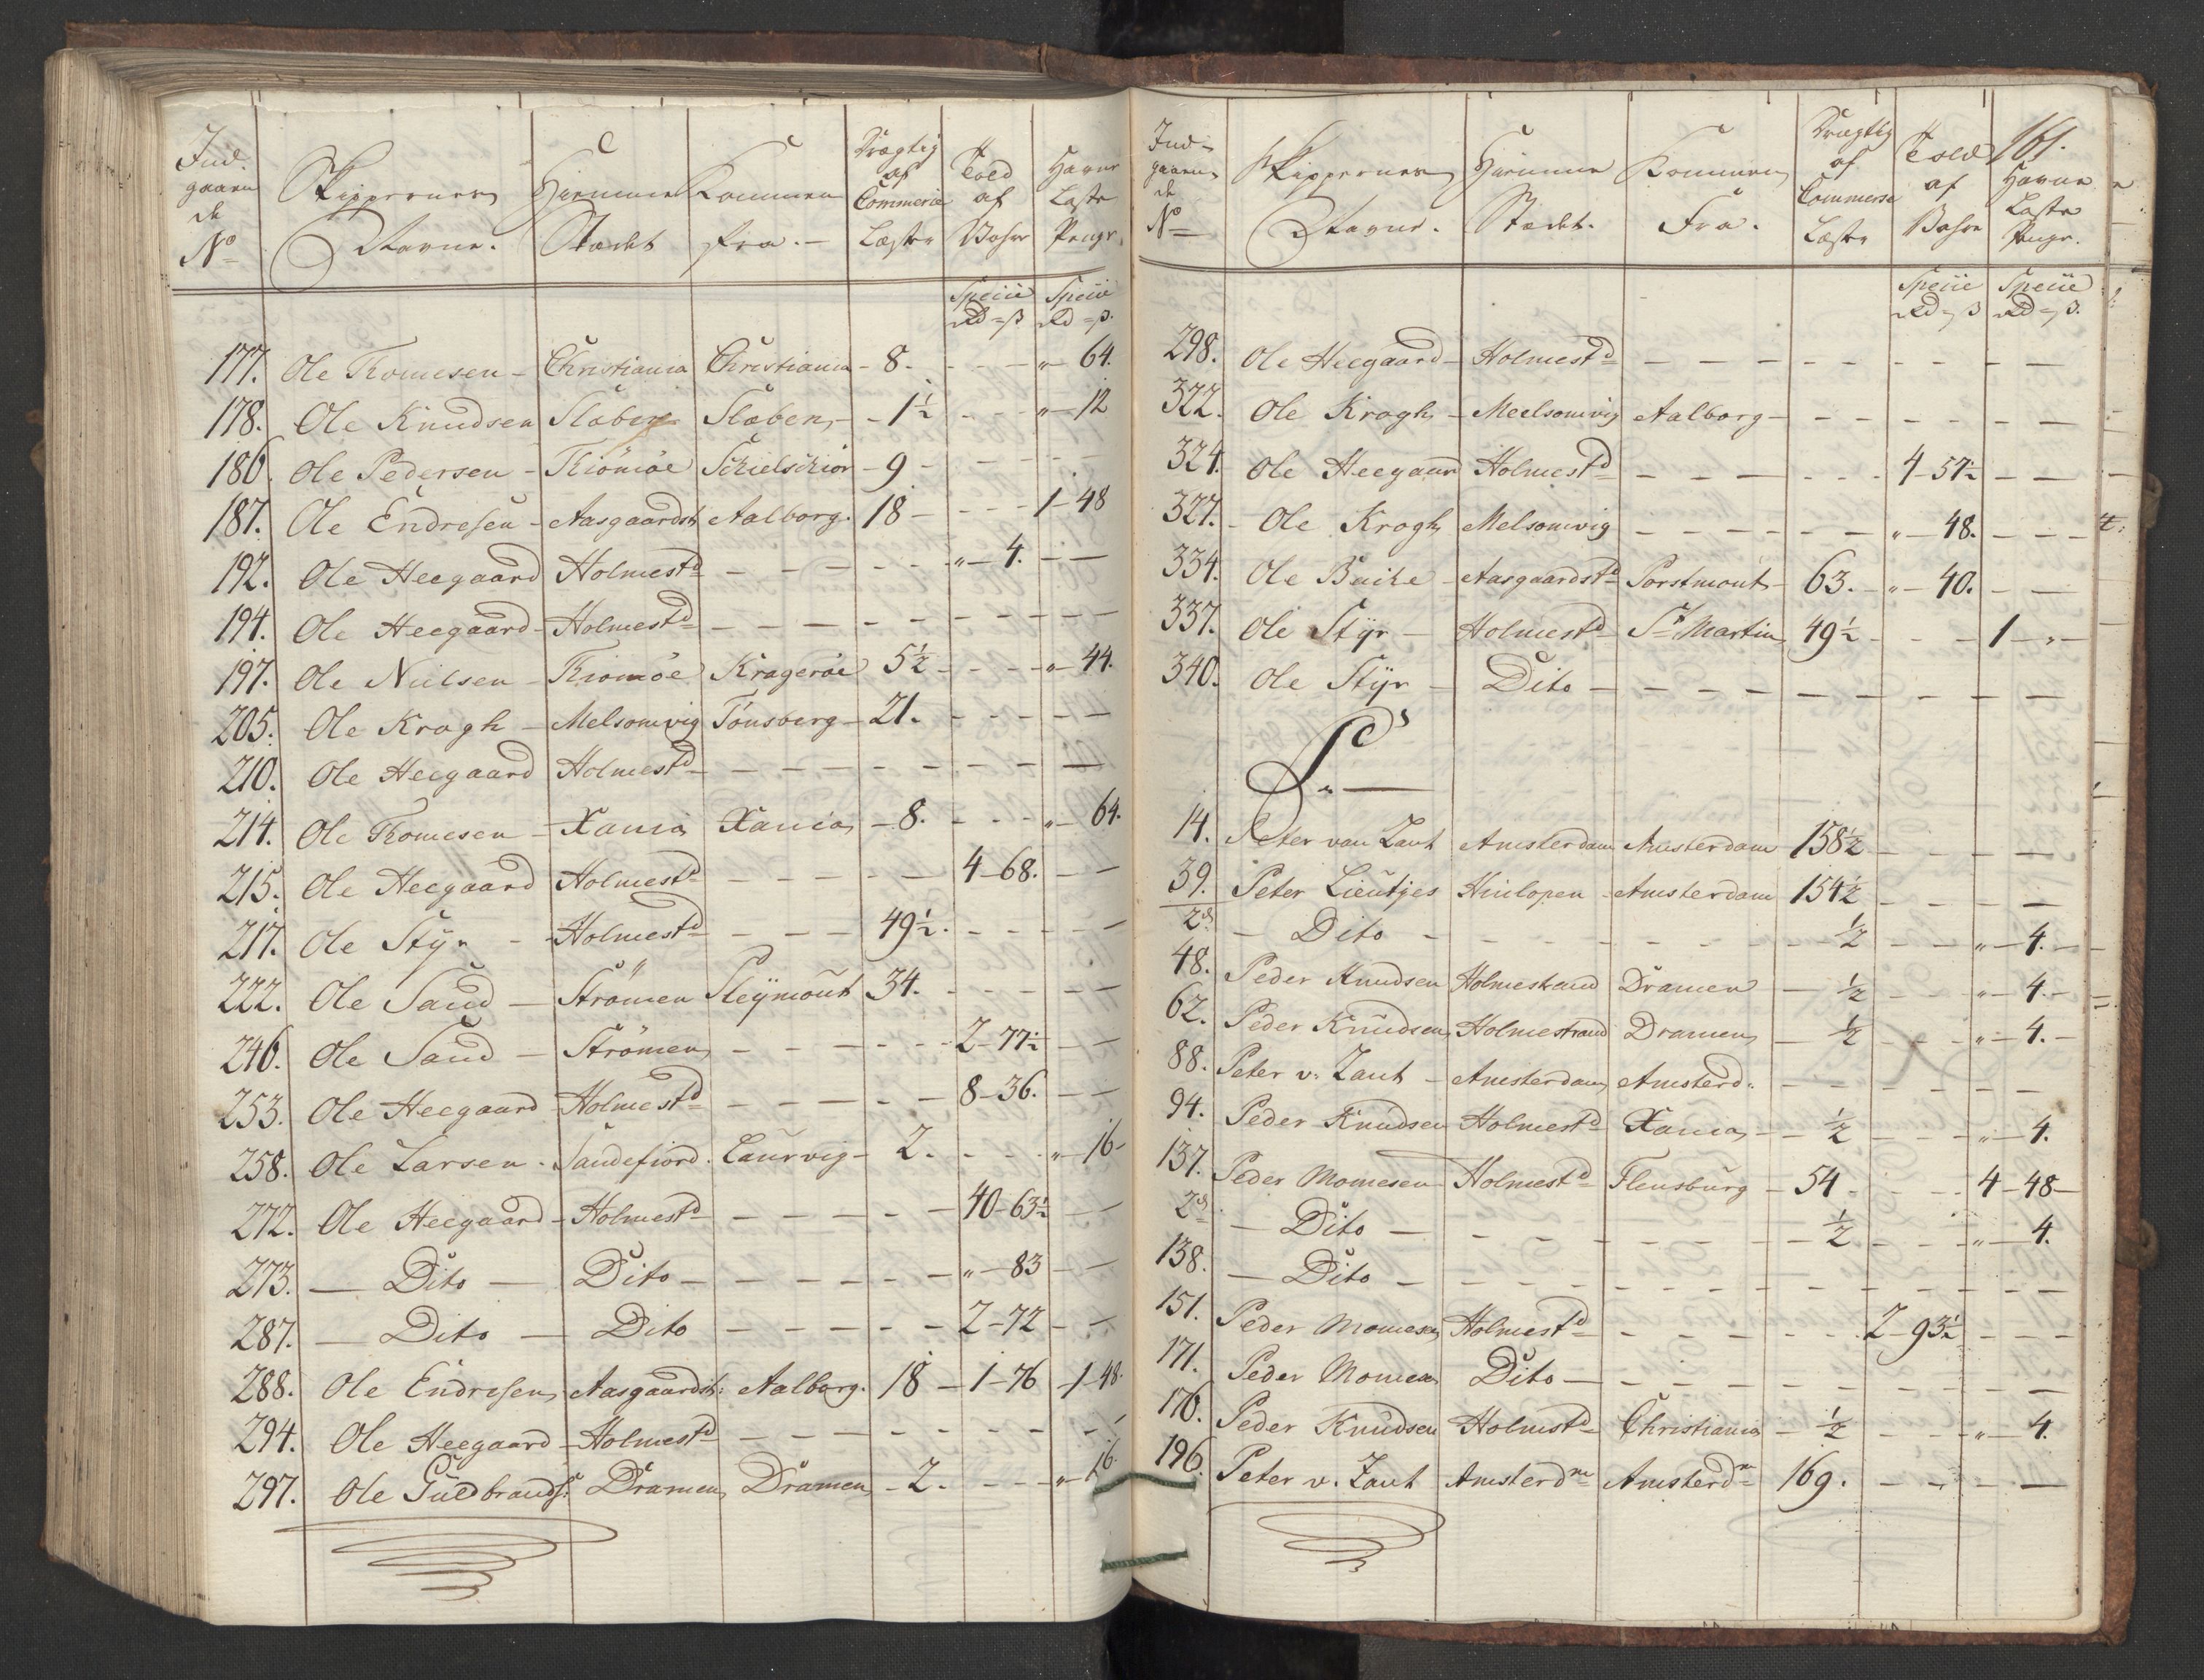 Ind-
gaaen
de
No
Skippernes
Navne.
Hiemme
Stædet
Kommen
fra.
Drægtig
af
Commerce
Læster
Told
af
Vahre
Havne
Læste
Penge.
Specie
Rd - ß
Specie
Rd - ß.
177. Ole Thomesen - Christiania Christiania - 8. - - - " - 64.
178. Ole Knudsen Slaben Slaben, - 1½ - - - " - 12
186. Ole Pedersen - Thiömöe Schielschiör - 9 - - - -
187. Ole Endresen - Aasgaardst Aalborg. 18 - - - - 1 - 48
192. Ole Heegaard Holmestd - - - - - " - 4. - -
194. Ole Heegaard - Holmestd - - - - - - - - -
197. Ole Nielsen - Thiomöe Kragerøe 5½ - - - - " - 44.
205. Ole Krogh - Melsomvig Tönsberg - 21. - - - - -
210. Ole Heegaard Holmestd - - - - - - - - -
214. Ole Thomesen - Xania Xania - 8. - - - - " - 64.
215. Ole Heegaard Holmestd - - - - - 4 - 68. - -
217. Ole Stÿr - Holmestd - - - 49½. - - - - -
222. Ole Sand - Strömen Pleÿmout 34. - - - - -
246. Ole Sand - Strömen - - - - - 2 - 77½ - -
253. Ole Heegaard Holmestd - - - - - 8 - 36. - -
258. Ole Larsen - Sandefiord. Laurvig - 2. - - - " - 16 -
272. Ole Heegaard - Holmestd - - - - - 40 - 63½ - -
273. - Dito - Dito - - - - - - " - 83 - -
287. - Dito - Dito - - - - - 2 - 72 - -
288. Ole Endresen, Aasgaardst: Aalborg. 18 - 1 - 76 - 1 - 48.
294. Ole Heegaard - Holmestd - - - - - - - - -
297. Ole Guldbrands: Dramen, Dramen, - 2. - - - " - 16.
161.
Ind-
gaaen-
de
No
Skippernes
Navne.
Hiemme
Stædet.
Kommen
Fra.
Drægtig
af
Commerce
Læster
Told
af
Vahre
Havne
Læste
Penge.
Specie
Rd - ß
Specie
Rd - ß.
298. Ole Heegaard - Holmestd - - - - - - - - -
322. Ole Krogh - Meelsomvig Aalborg - - - - - - -
324. Ole Heegaar Holmestd - - - - - - 4 - 57½ - -
327. - Ole Krogh Melsomvig - - - - - - " - 48. - - -
334. Ole Bache - Aasgaardstd Porstmout - 63. - " - 40. - -
337. Ole Stÿr - Holmestd St Martin 49½ - - - 1 - " -
340. Ole Stÿr - Dito - - - - - - - - - -
P.
14. Peter van Zant Amsterdam Amsterdam 158½ - - - -
39. Peter Lieutjes Hinlopen - Amsterdam 154½ - - - -
2d - Dito - - - - - - - ½ - - " - 4. -
48. Peder Knudsen Holmestrand Dramen - ½ - - - " - 4. -
62. Peder Knudsen, Holmestrand Dramen, - ½ - - - " - 4. -
88. Peter v. Zant - Amsterdam, Amsterd: - - - - - -
94. Peder Knudsen Holmestd Xania, - - ½ - - - " - 4.
137. Peder Momesen Holmestd Flensburg - 54 - - - - 4 - 48 -
2d - Dito - - - - - - - ½ - - - " - 4.
138. - Dito - - - - - - - - - - -
151. Peder Momesen, Holmestd - - - - - - 2 - 93½ - - -
171. Peder Momesen Dito - - - - - - - - - -
176. Peder Knudsen Holmstd Christiania - ½ - - - " - 4.
196. Peter v. Zant Amsterdm Amsterdm 169. - - - -